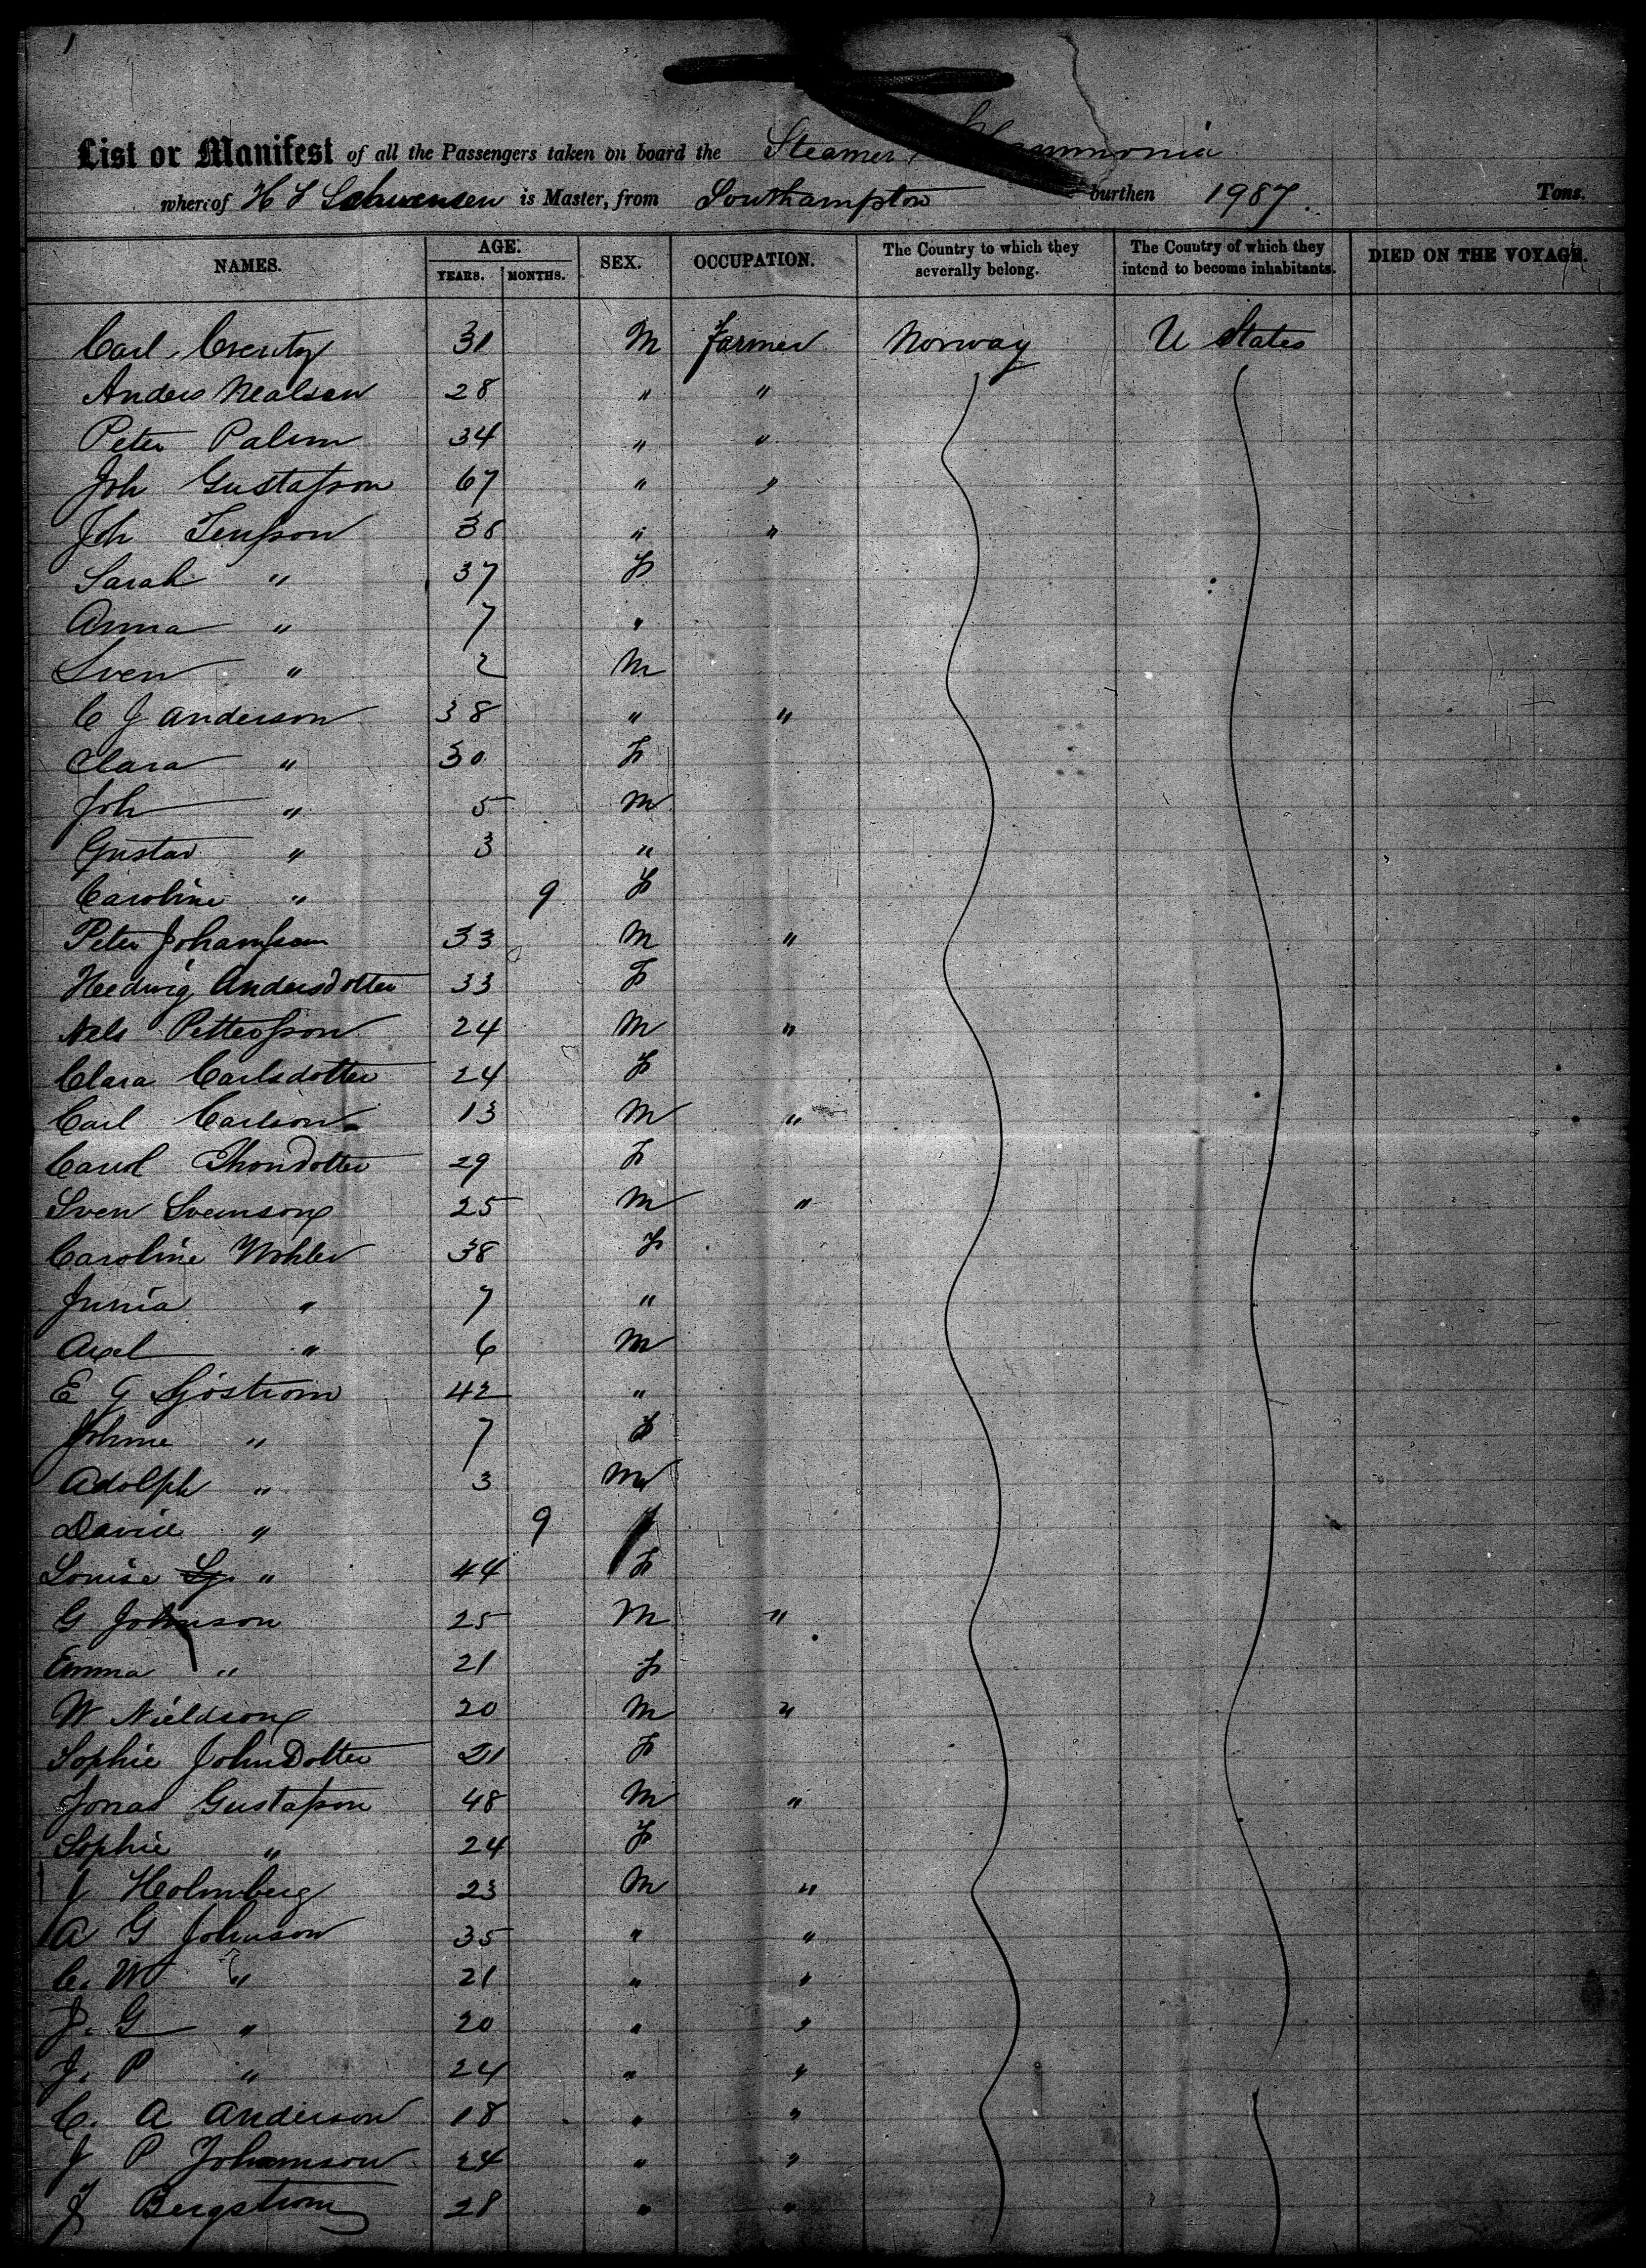 1
List or Manifest of all the Passengers taken on board the Steamer Hammonia
whereof H F Schwensen is Master, from Southampton burthen 1987. Tons.
NAMES. AGE. YEARS. MONTHS. SEX. OCCUPATION. The Country to which they severally belong. The Country of which they intend to become inhabitants. DIED ON THE VOYAGE.
Carl 31 M Farmer Norway U States
Anders Nealsen 28 " "
Peter Palm 34 " "
Joh Gustafson 67 " "
Joh 38 " "
Sarah " 37 F
Anna " 7 "
Sven " 2 M
C J Anderson 38 " "
Clara " 30 F
Joh " 5 M
Gustav " 3 "
Caroline " 9 F
Peter Johansson 33 M "
Hedwig Andersdotter 33 F
Nels Pettersson 24 M "
Clara Carlsdotter 24 F
Carl Carlson 13 M "
Carol 29 F
Sven Svenson 25 M "
Caroline Wohler 38 F
Junia " 7 "
Axel " 6 M
E G Sjostrom 42 "
" 7 F
Adolph " 3 M
David " 9
Louise " 44 F
G Johnson 25 M "
Emma " 21 F
W Nieldson 20 M "
Sophie JohnDotter 21 F
Jonas Gustafson 48 M "
Sophie " 24 F
J Holmberg 23 M "
A G Johnson 35 " "
C. W " 21 " "
J. G " 20 " "
J. P " 24 " "
C. A Anderson 18 " "
J P Johanson 24 " "
J Bergstrom 28 " "